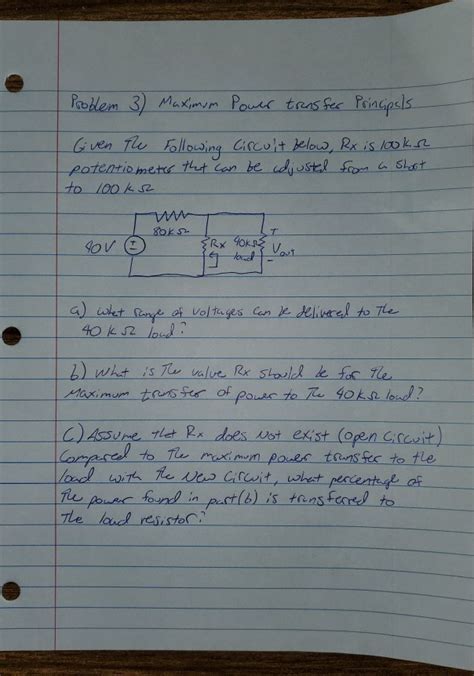 Problem 3) Maximum Power transfer Principals
Given The Following Circuit below, Rx is 100kΩ
potentiometer that can be adjusted from a short
to 100kΩ
80kΩ
+
Rx 40kΩ
80V
load
Vout
-
a) what range of voltages can be delivered to The
40kΩ load?
b) What is The value Rx should be for the
Maximum transfer of power to The 40kΩ load?
C) Assume that Rx does Not exist (open Circuit)
Compared to The maximum power transfer to the
load with The New Circuit, what percentage of
The power found in part(b) is transferred to
The load resistor?